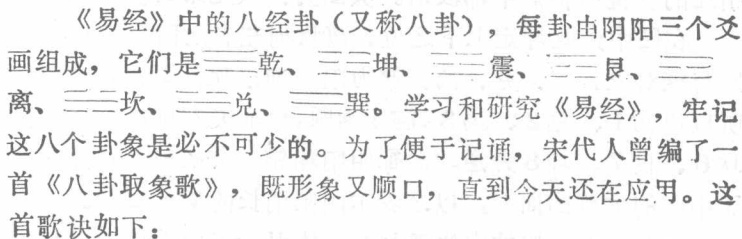 《易经》中的八经卦（又称八卦），每卦由阴阳三个爻
画组成，它们是☰乾、☷坤、☳震、☶艮、☲
离、☵坎、☱兑、☴巽。学习和研究《易经》，牢记
这八个卦象是必不可少的。为了便于记诵，宋代人曾编了一
首《八卦取象歌》，既形象又顺口，直到今天还在应用。这
首歌诀如下：